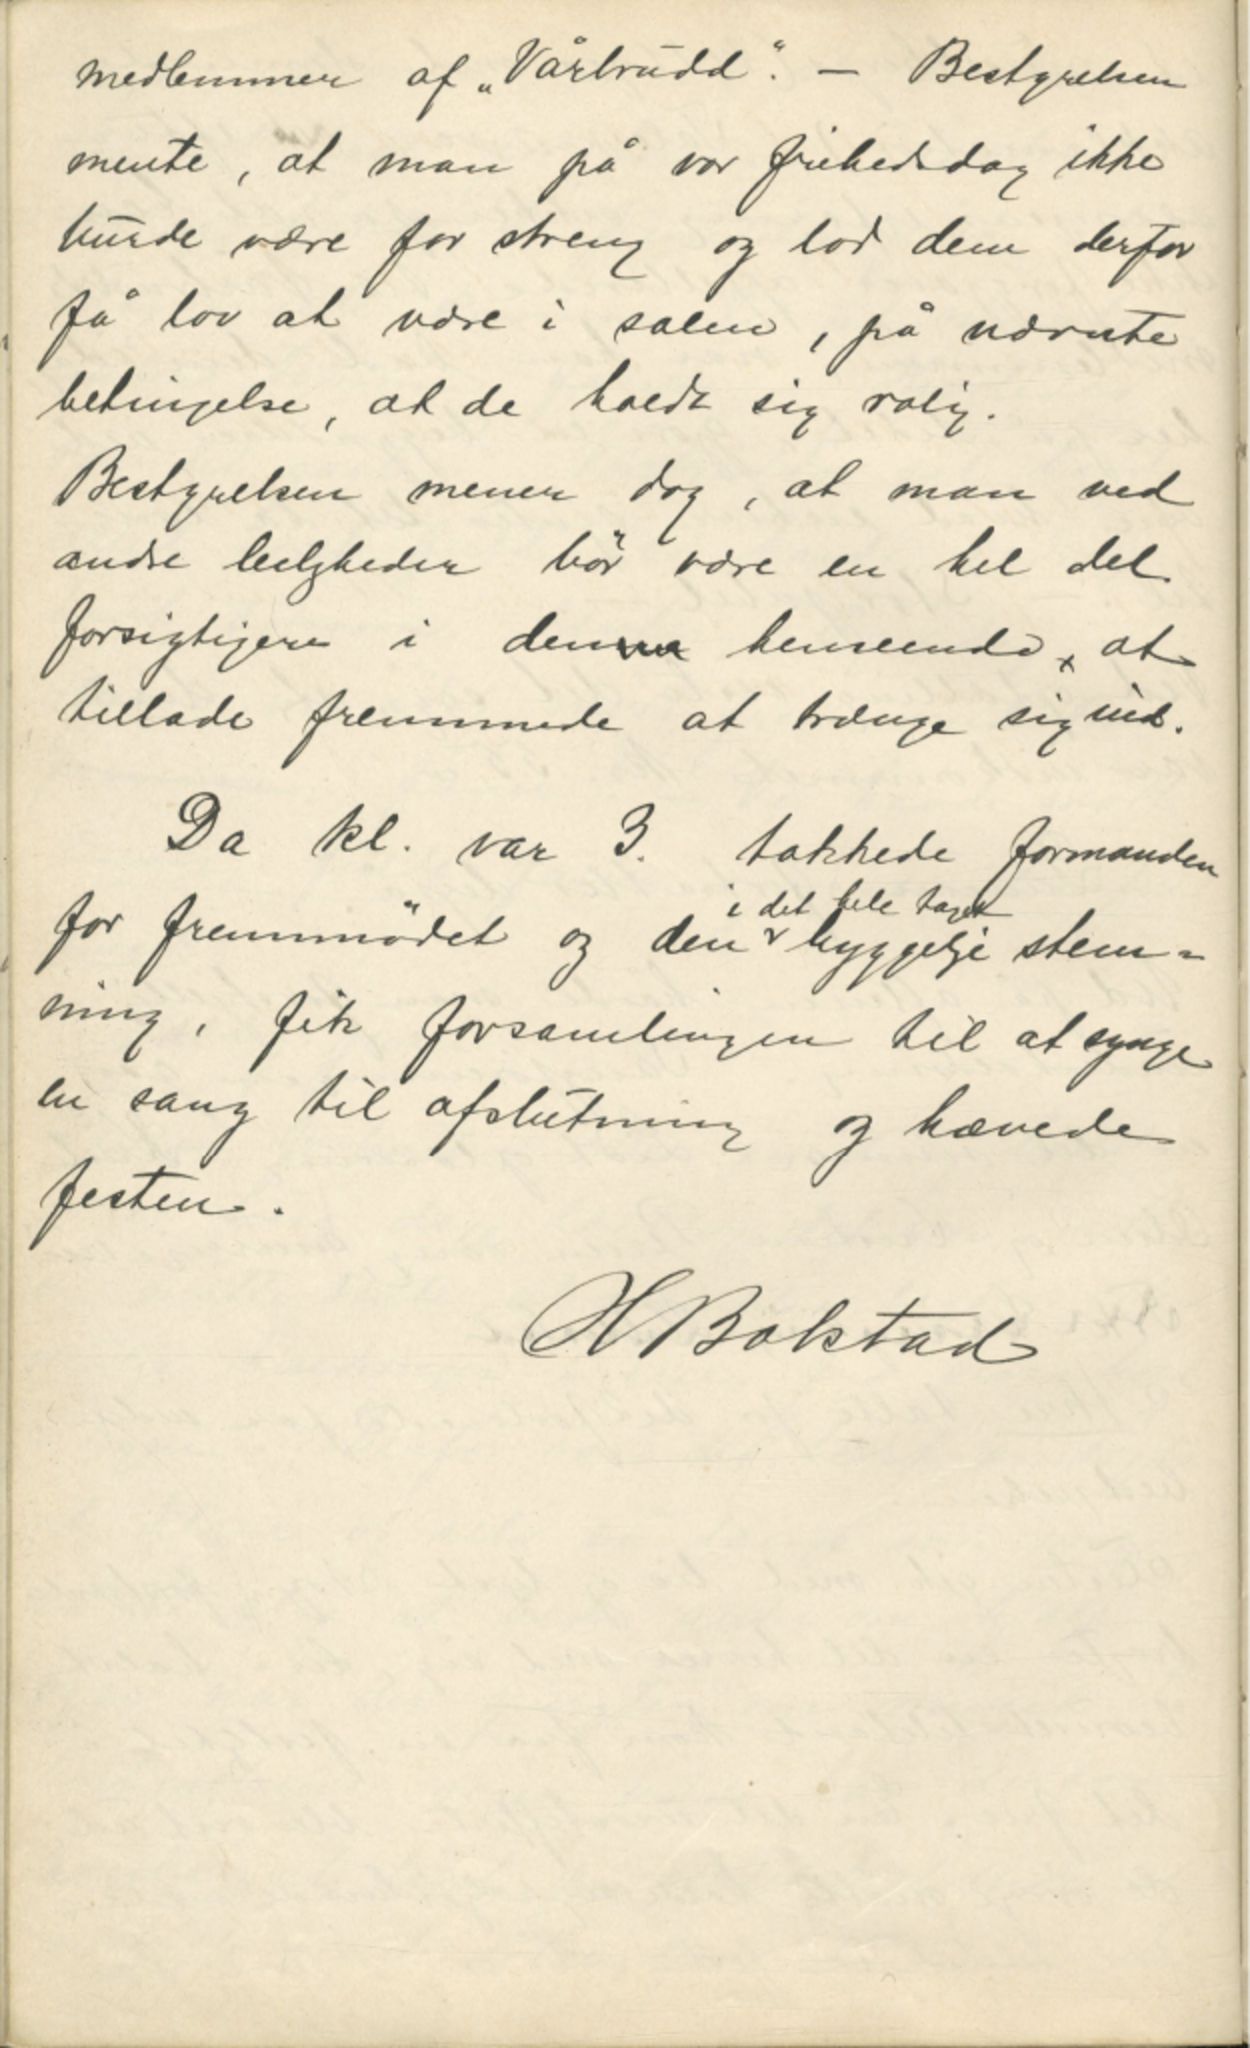 medlemmer af „Vårbrudd“. — Bestyrelsen
mente, at man på vor frihedsdag ikke
burde være for streng og lod dem derfor
få lov at være i salen, på nævnte
betingelse, at de holdt sig rolig.
Bestyrelsen mener dog, at man ved
andre leiligheder bör være en hel del
forsigtigere i denne henseende, at
tillade fremmede at trænge sig ind.
Da kl. var 3. takkede formanden
for fremmödet og den i det hele taget hyggelje stem-
ning, fik forsamlingen til at synge
en sang til afslutning og hævede
festen.
H Bakstad